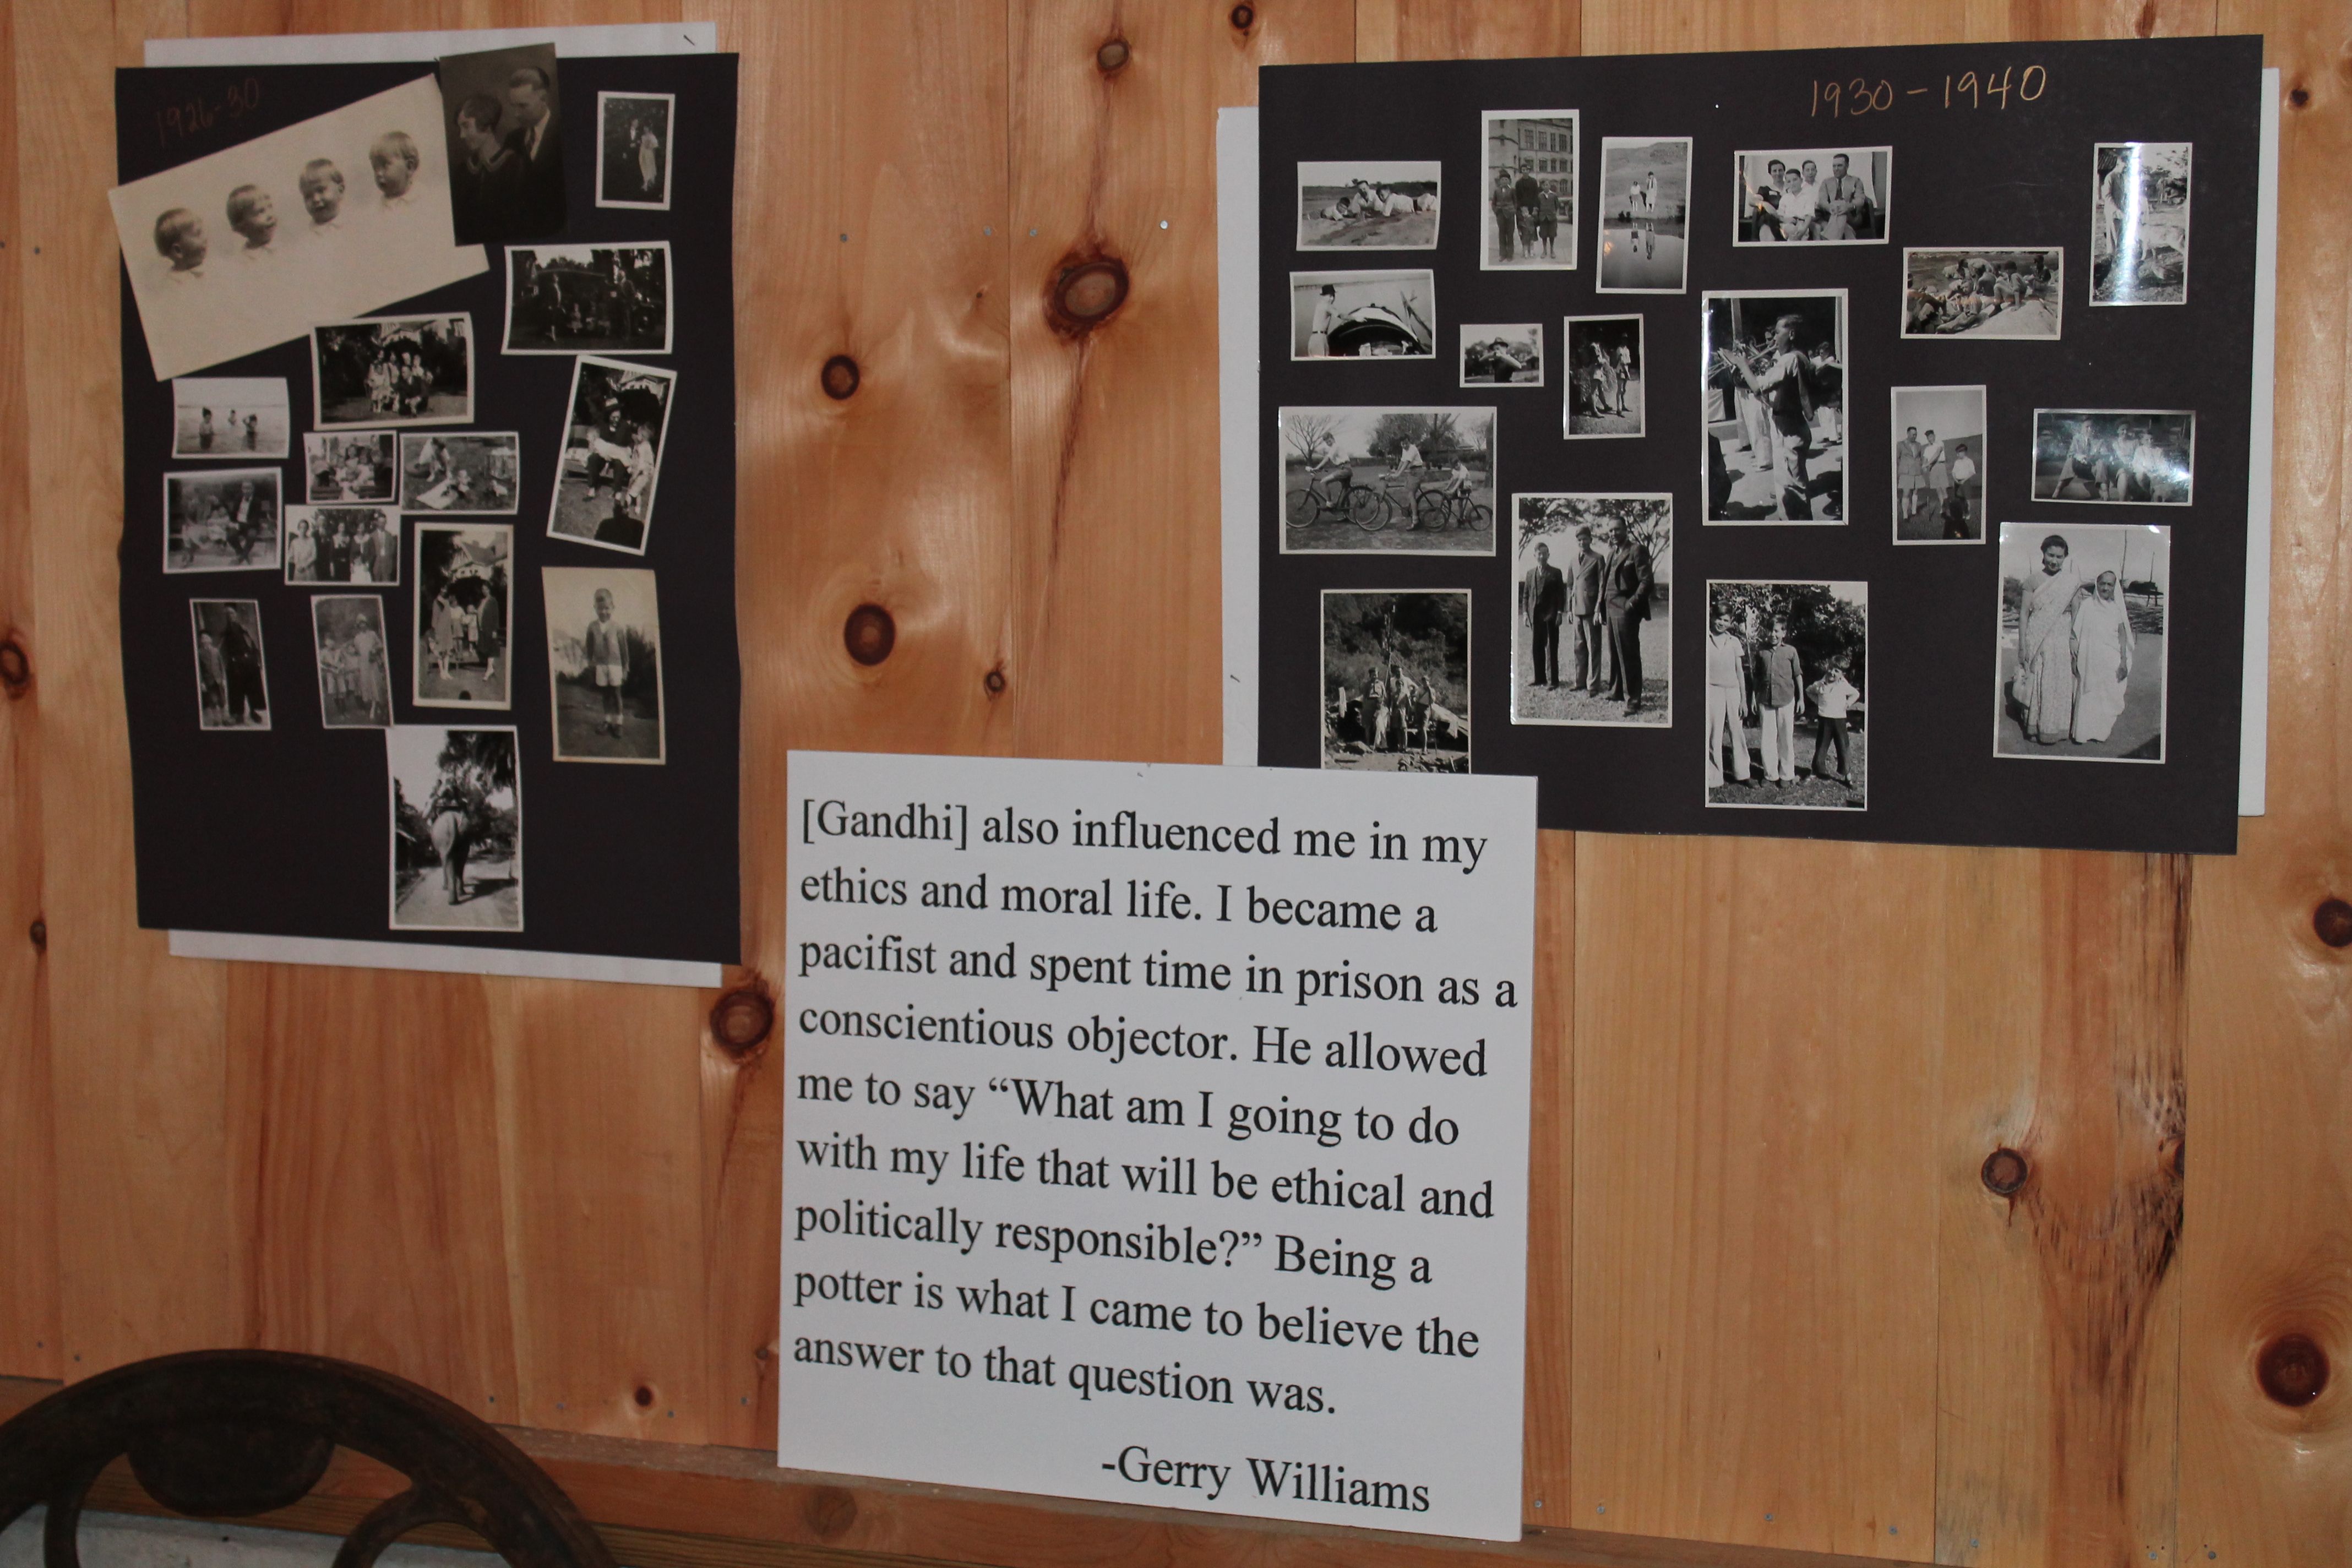 1926-30
1930-1940
[Gandhi] also influenced me in my
ethics and moral life. I became a
pacifist and spent time in prison as a
conscientious objector. He allowed
me to say “What am I going to do
with my life that will be ethical and
politically responsible?” Being a
potter is what I came to believe the
answer to that question was.
-Gerry Williams